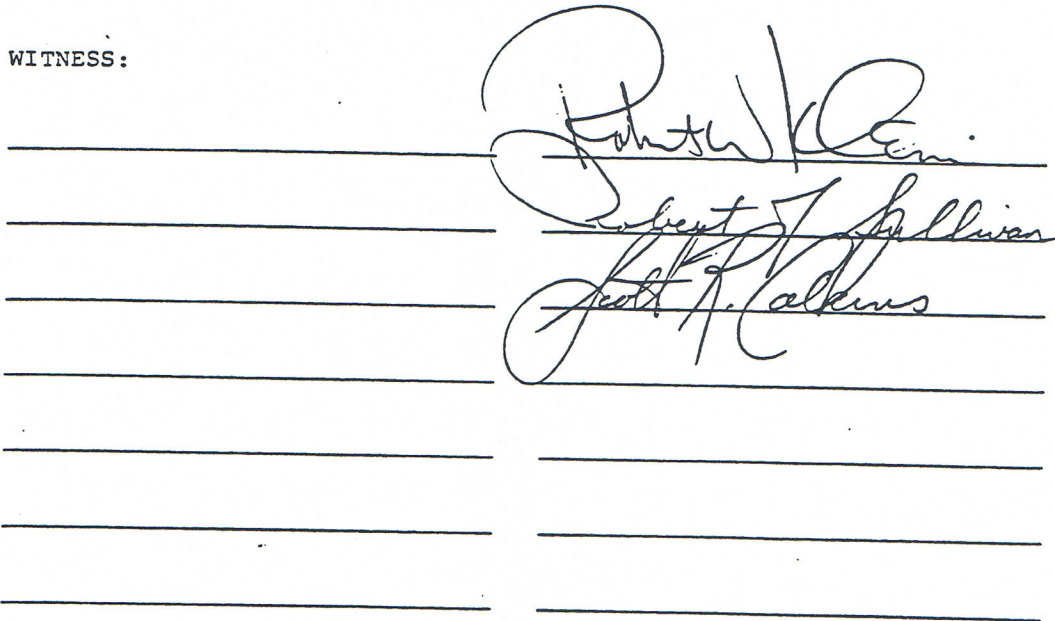 WITNESS:
Robert W Klein
Robert J Sullivan
Scott R. Calkins